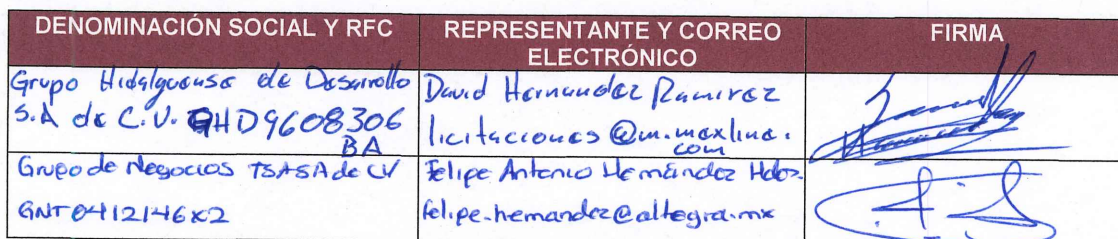 DENOMINACIÓN SOCIAL Y RFC
REPRESENTANTE Y CORREO ELECTRÓNICO
FIRMA
Grupo Hidalguense de Desarrollo
S.A de C.V. GHD9608306
BA
David Hernandez Ramirez
licitaciones@m.maxlina.
com
Grupo de Negocios TSASA de CV
GNT0412146X2
Felipe Antonio Hernández Hdez.
felipe.hernandez@altegra.mx